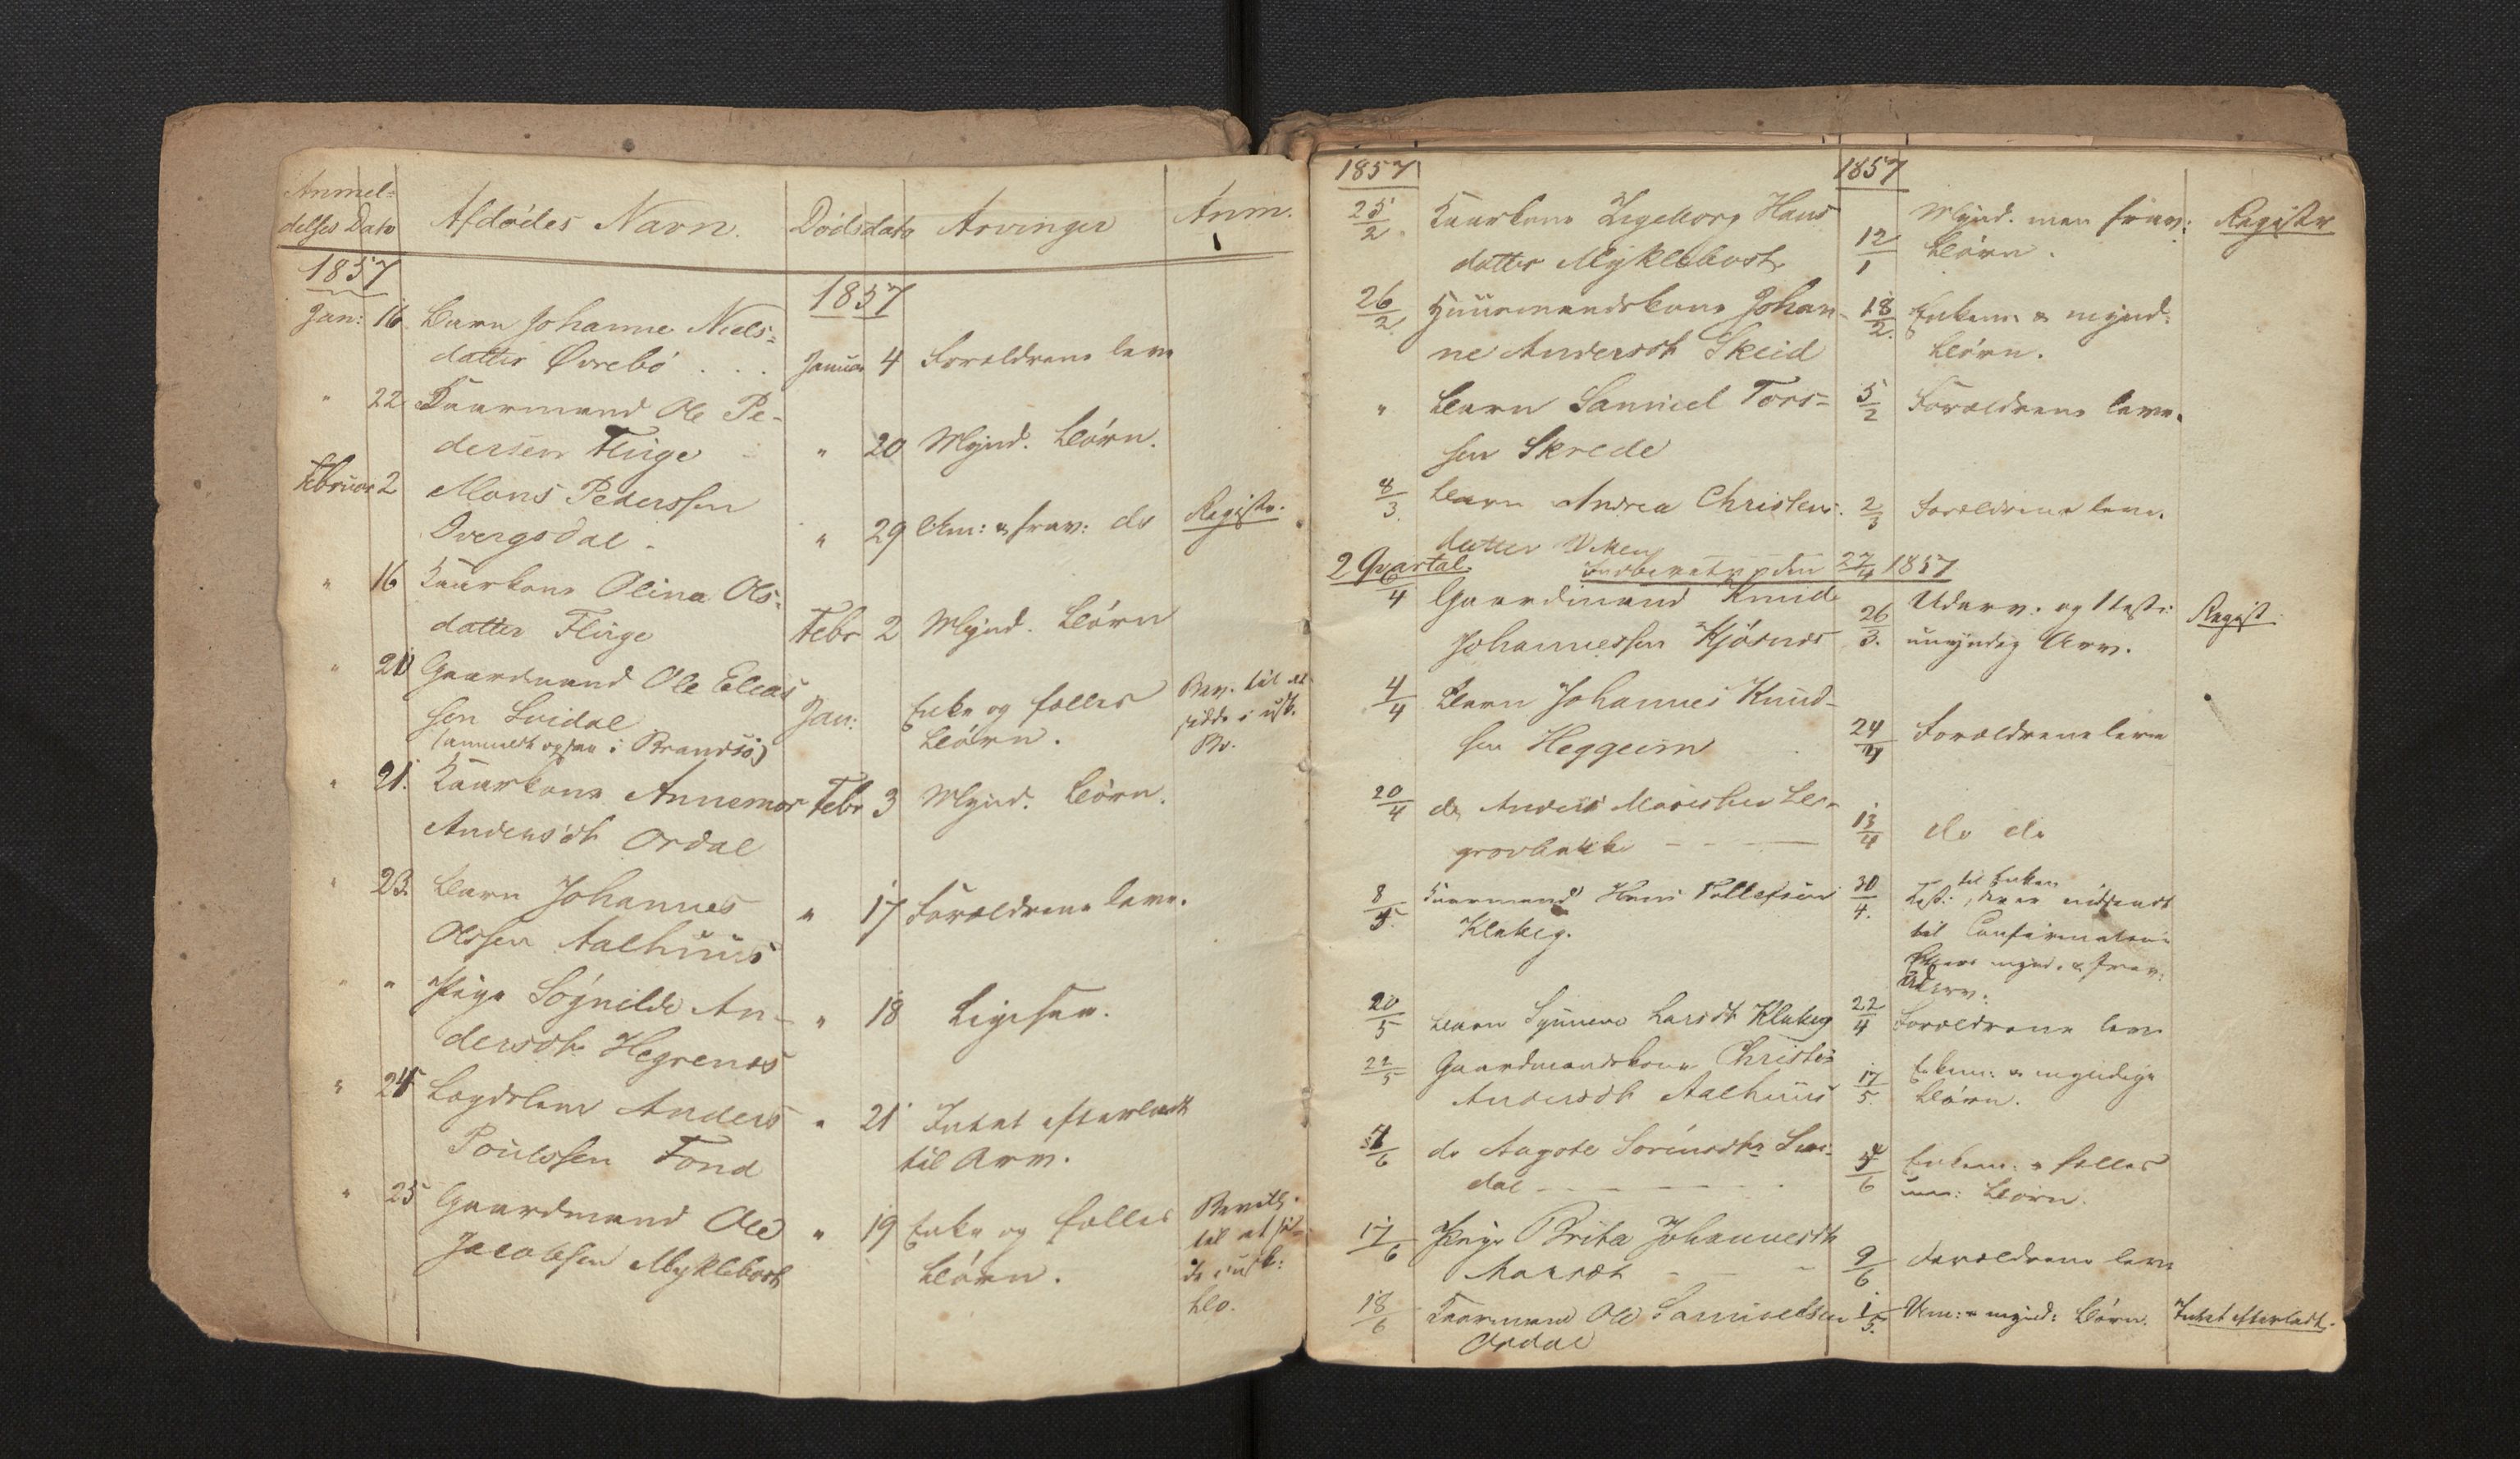 Anmel=
delses Dato
Afdødes Navn.
Dødsdato
Arvinger
Anm.
1857
1857
Jan: 16 Barn Johanne Niels=
datter Øvrebø . . . Januar 4 Forældrene leve
" 22 Kaarmand Ole Pe-
dersen Fluge " 20 Mynd. Børn.
Februar 2 Mons Pederssen
Dvergsdal. " 29 Um: & frav: do Registr.
" 16 Kaarkone Olina Ols-
datter Fluge Febr 2 Mynd. Børn
" 20 Gaardmand Ole Elias
sen Svidal Jan: Enke og fælles
Børn. Bev. til at
sidde i usk.
Bo.
(anmeldt ogsaa i Brandsø)
" 21. Kaarkone Annemor Febr 3 Mynd. Børn.
Andersdt Ordal
" 23. Barn Johannes
Olssen Aalhuus " 17 Forældrene leve.
" " Pige Søgnilde An-
dersdt Hegrenes " 18 Ligesaa.
" 24 Lægdslem Anders
Poulssen Fond " 21 Intet efterladt
til Arv.
" 25 Gaardmand Ole
Jacobsen Myklebost " 19 Enke og fælles
Børn. Bevilg.
til at sid-
de i usk:
Bo.
1857
1857
25/2. Kaarkone Ingeborg Hans
datter Myklebost 12/1 Mynd. men frav:
Børn. Registr
26/2. Huusmandskone Johan-
ne Andersdt Skeid 18/2. Enkem: & mynd:
Børn.
" Barn Samuel Tors=
sen Skrede 5/2 Forældrene leve.
8/3. Barn Andrea Christens-
datter Viken 2/3 Forældrene leve.
2 Qvartal. Indberetn. den 27/4 1857
6/4 Gaardmand Knud
Johannessen Kjøsnes 26/3. Udarv. og 1 test:
umyndig Arv. Regist.
4/4 Barn Johannes Knud-
sen Heggeim 24/3 Forældrene leve
20/4 do Anders
13/4 do do
8/5. Kaarmand Hans Tollefsen
Klakeg. 30/4. til Enken
Test:
til Confirmation
mynd. & frav:
Udarv.
20/5 Barn Synneve Larsdt Klakeg 22/4 Forældrene leve
22/5 Gaardmandskone Christi
Andersdt Aalhuus 17/5. Enkem: & myndige
Børn.
6 do Augote Sørensdtr Svi-
dal 6 Enkem: & fælles
um: Børn.
17/6 Pige Brita Johannesdt
Aarset 9/6 Forældrene leve
18/6 Kaarmand Ole Samuelsen
Ordal 1/5. Um: & mynd: Børn. Intet efterladt.